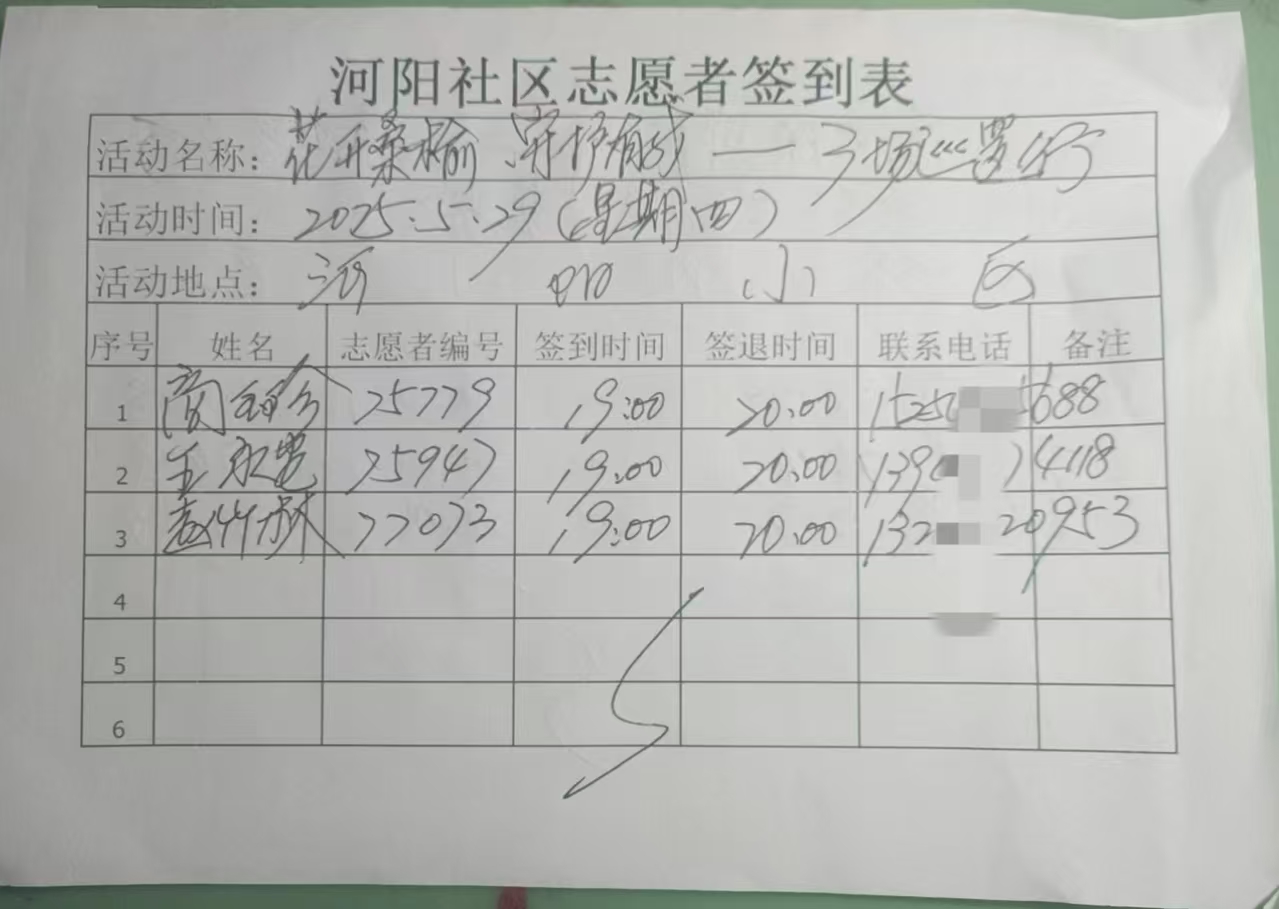 河阳社区志愿者签到表
活动名称：花开桑榆 守护有我 ——
活动时间：2025.5.29（星期四）
活动地点：河阳小区
序号 姓名 志愿者编号 签到时间 签退时间 联系电话 备注
1 25779 19:00 20:00 1525 5688
2 王永宽 25947 19:00 20:00 139 4118
3 77073 19:00 20:00 132 20953
4
5
6